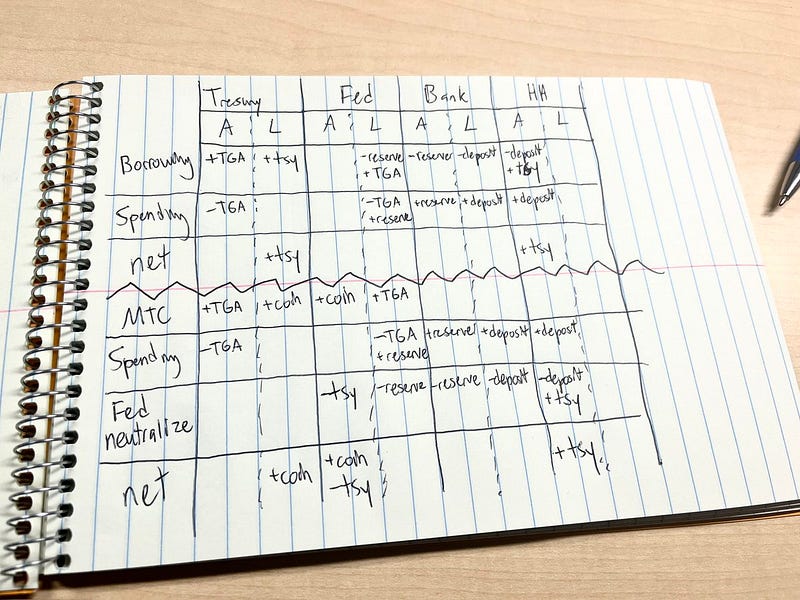 Tresury Fed Bank HA
A L A L A L A L
Borrowing +TGA +tsy -reserve -reserve -deposit -deposit
+TGA +tsy
Spending -TGA -TGA +reserve +deposit +deposit
+reserve
net +tsy +tsy
MTC +TGA +coin +coin +TGA
Spending -TGA -TGA +reserve +deposit +deposit
+reserve
Fed -tsy -reserve -reserve -deposit -deposit
neutralize +tsy
net +coin +coin +tsy
-tsy